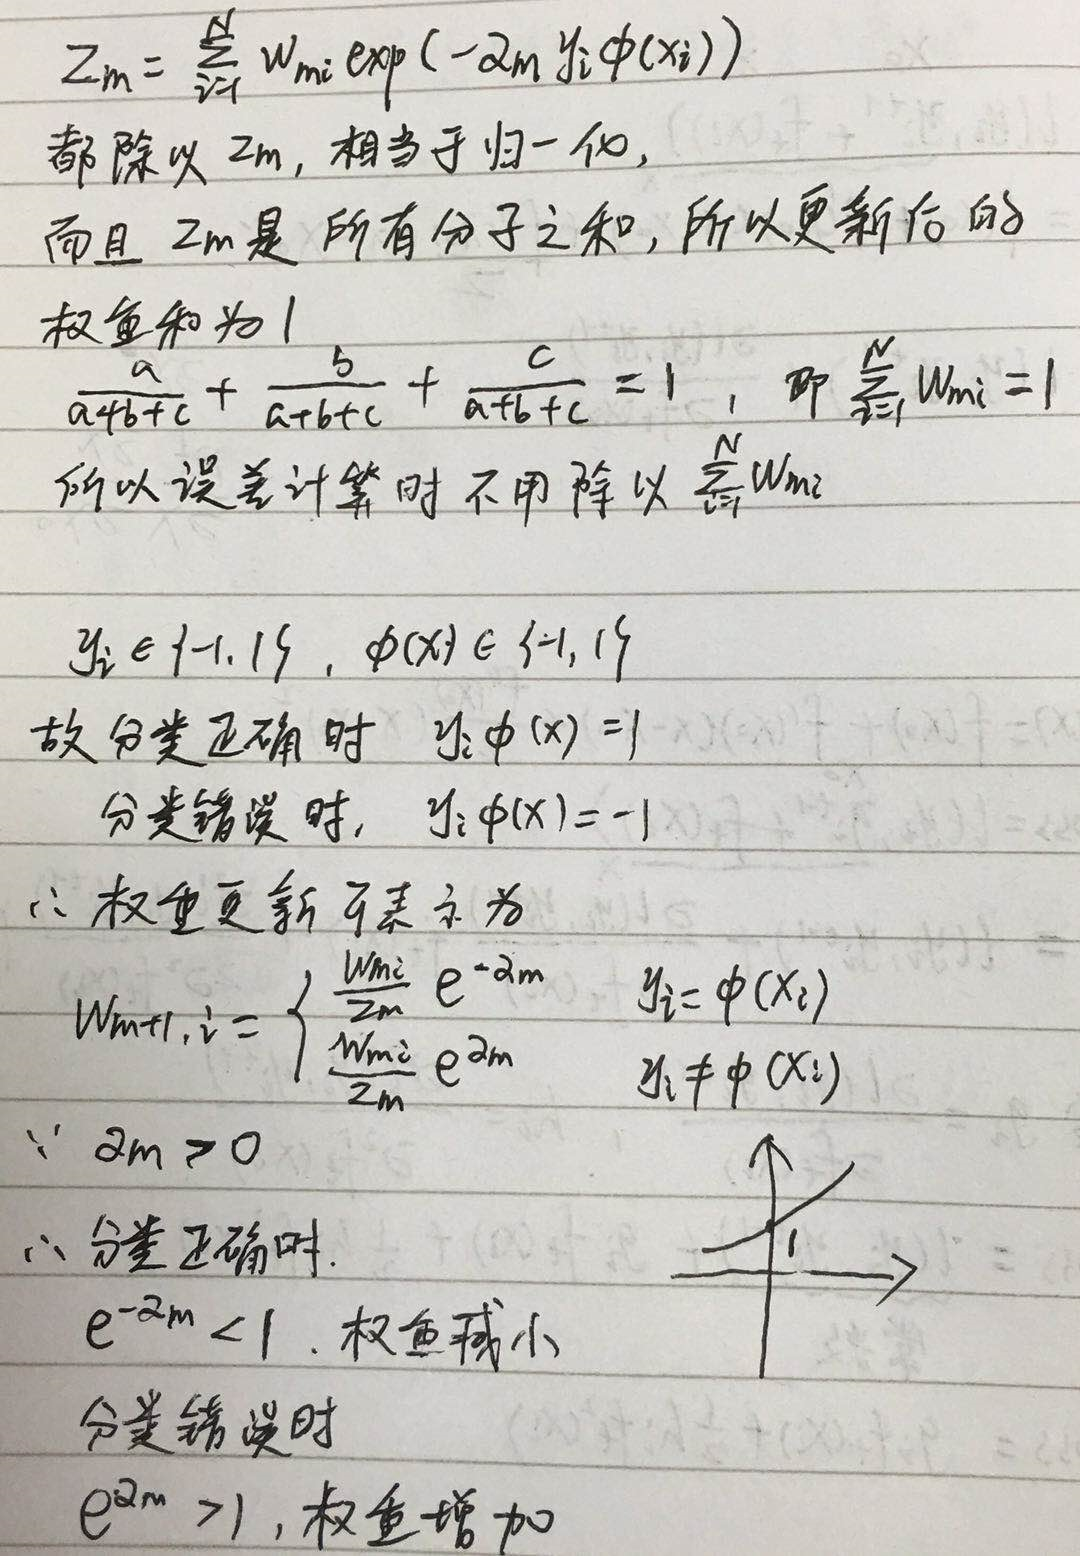 Zm = Σ_{i=1}^{N} Wmi exp(-αm yi φ(xi))
都除以 Zm, 相当于归一化,
而且 Zm是 所有分子之和, 所以更新后的
权重和为1
a/(a+b+c) + b/(a+b+c) + c/(a+b+c) = 1 , 即 Σ_{i=1}^{N} Wmi = 1
所以误差计算时不用除以 Σ_{i=1}^{N} Wmi
yi ∈ {-1, 1} , φ(x) ∈ {-1, 1}
故分类正确时 yi φ(x) = 1
分类错误时, yi φ(x) = -1
∴ 权重更新可表示为
Wm+1,i = { Wmi/Zm e^{-αm} yi = φ(xi)
Wmi/Zm e^{αm} yi ≠ φ(xi)
∵ αm > 0
∴ 分类正确时.
1
e^{-αm} < 1 . 权重减小
分类错误时
e^{αm} > 1 , 权重增加